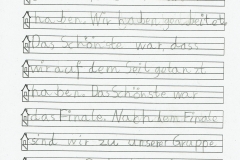 haben. Wir haben gearbeitet.
Das Schönste war, dass
wir auf dem Seil getanzt
haben. Das Schönste war
das Finale. Nach dem Finale
sind wir zu unserer Gruppe